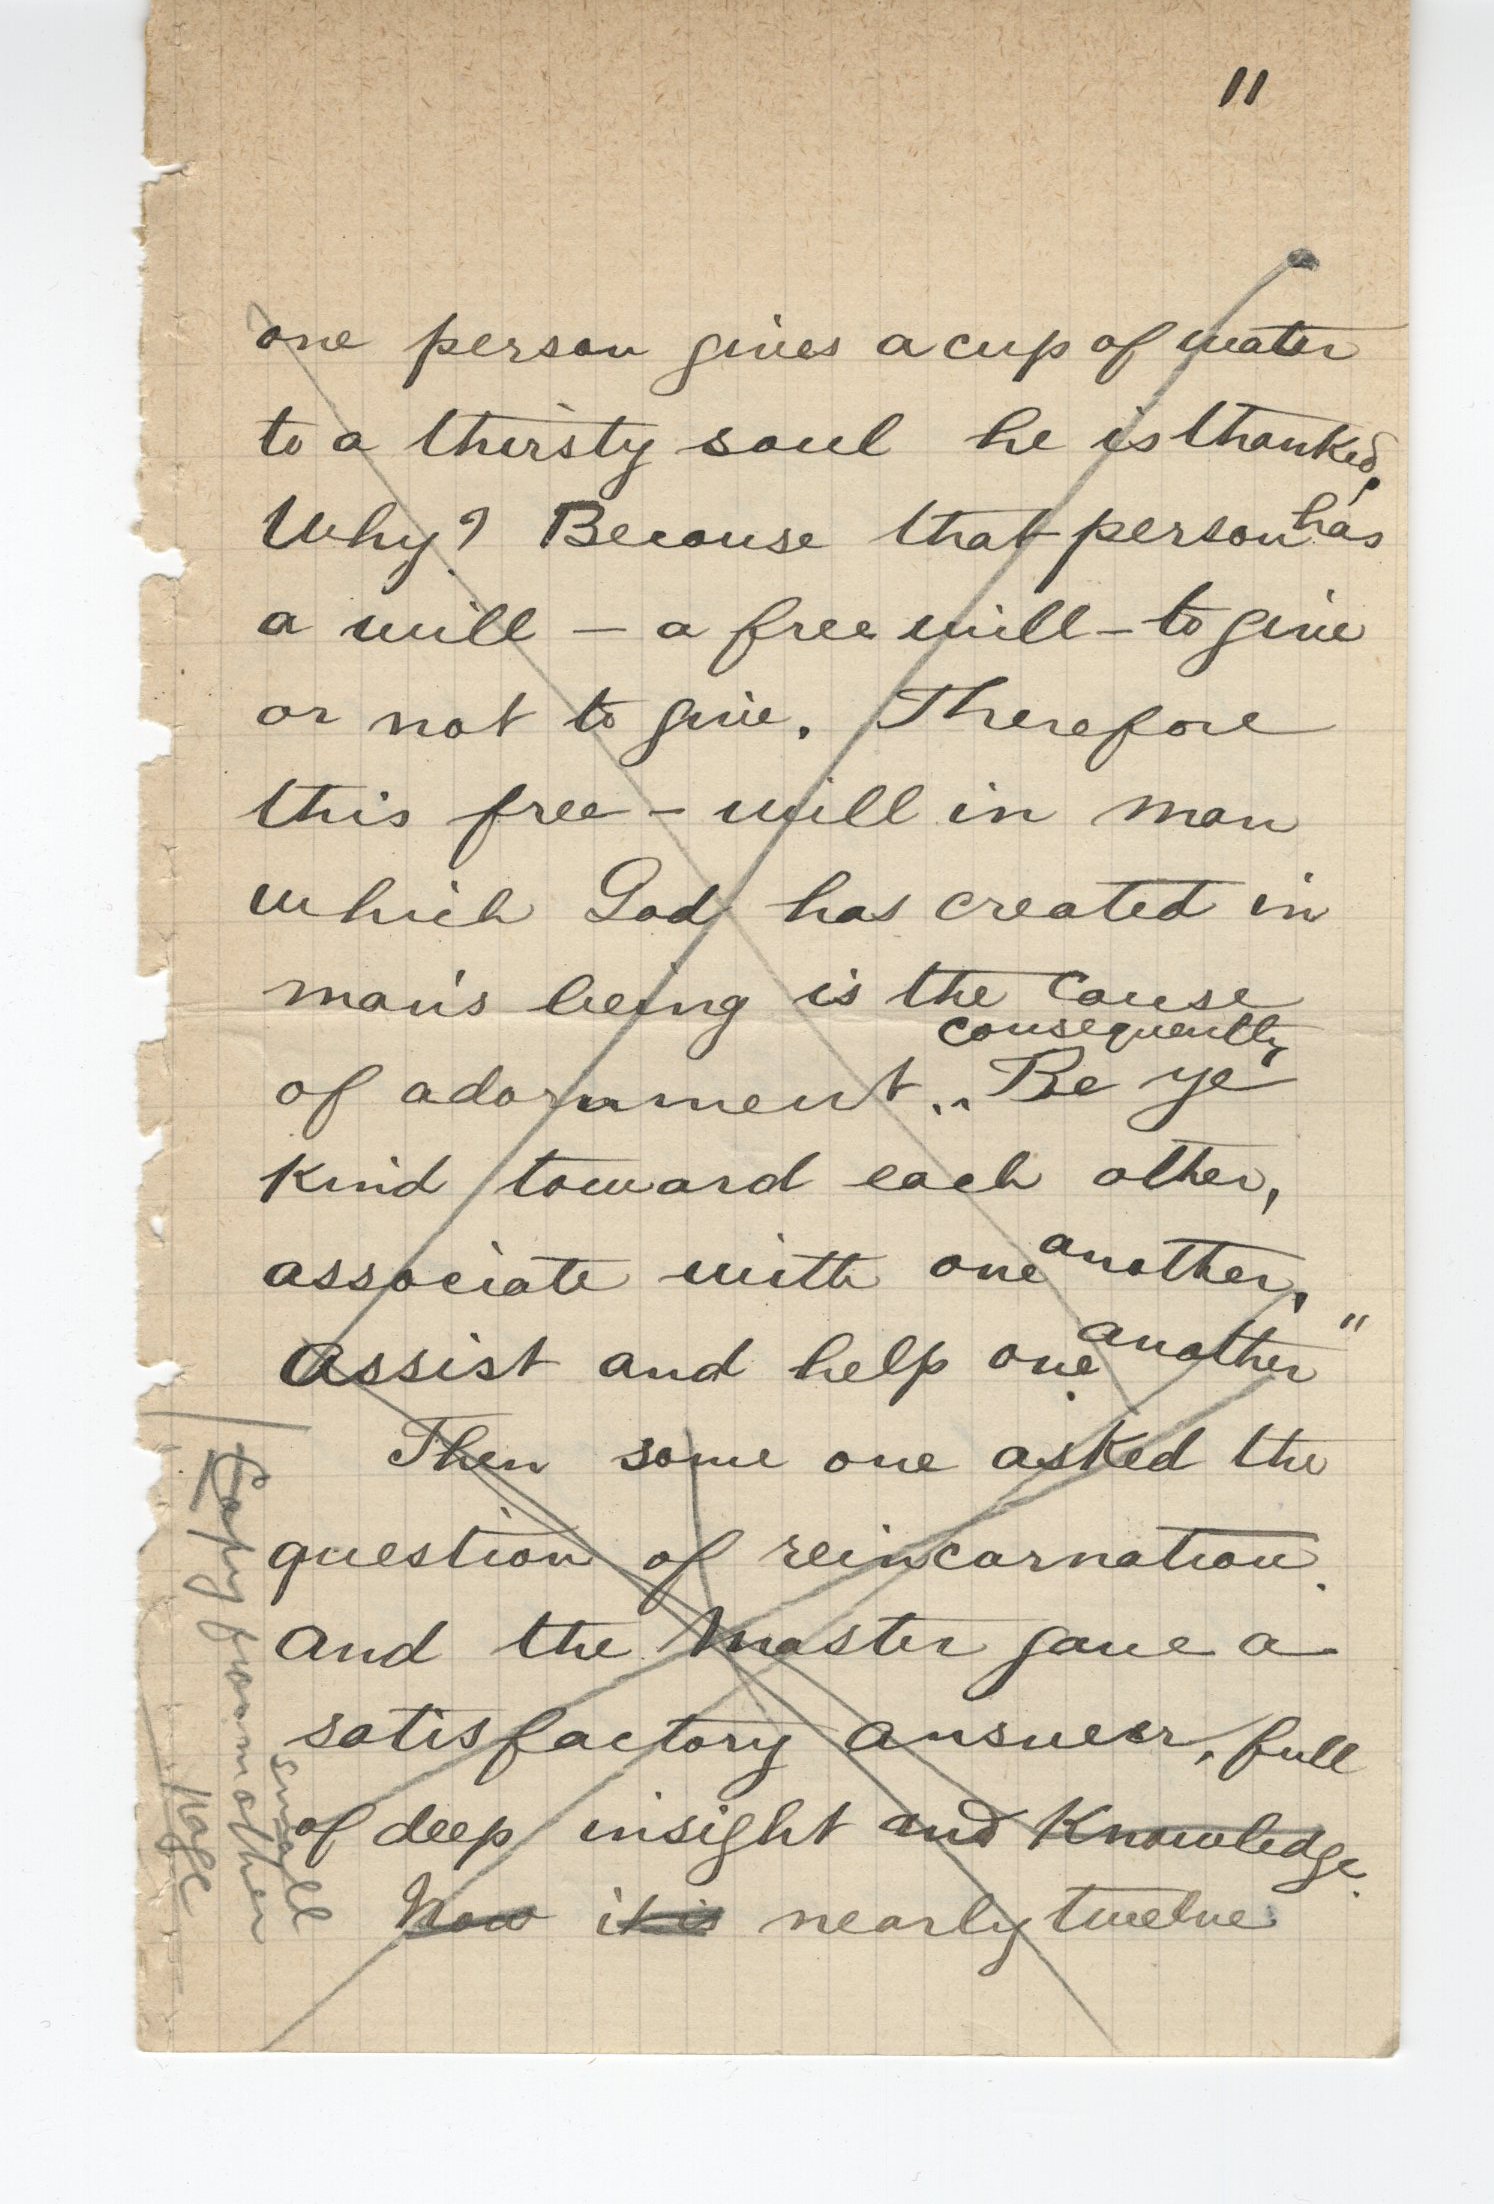 11
one person gives a cup of water
to a thirsty soul he is thanked.
Why? Because that person has
a will – a free will – to give
or not to give. Therefore
this free – will in man
which God has created in
man's being is the cause
consequently
of adornment. .. Be ye
kind toward each other,
associate with one another,
assist and help one another"
Then some one asked the
question of reincarnation.
And the Master gave a
satisfactory answer, full
of deep insight and knowledge.
Now it is nearly twelve
Copy from another
small
page